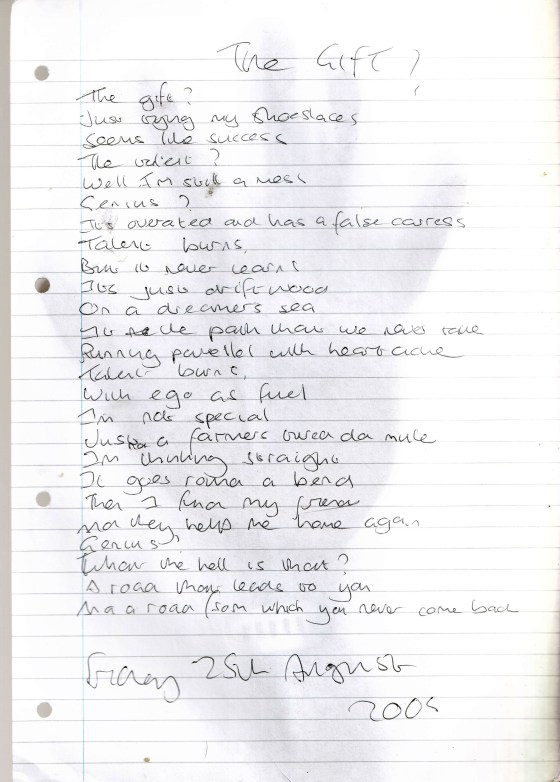 The Gift?
The gift?
Just tying my shoeslaces
Seems like success
The talent?
Well I'm still a mess
Genius?
Its overated and has a false caress
Talent burns,
But it never learns
Its just driftwood
On a dreamers sea
It the path that we never take
Running parellel with heartache
Talent burns,
With ego as fuel
Im not special
Just a farmers tired old mule
Im thinking straight
It goes round a bend
Then I find my friend
And they helps me home again
Genius?
What the hell is that?
A road that leads to you
And a road from which you never come back
25th August
2005